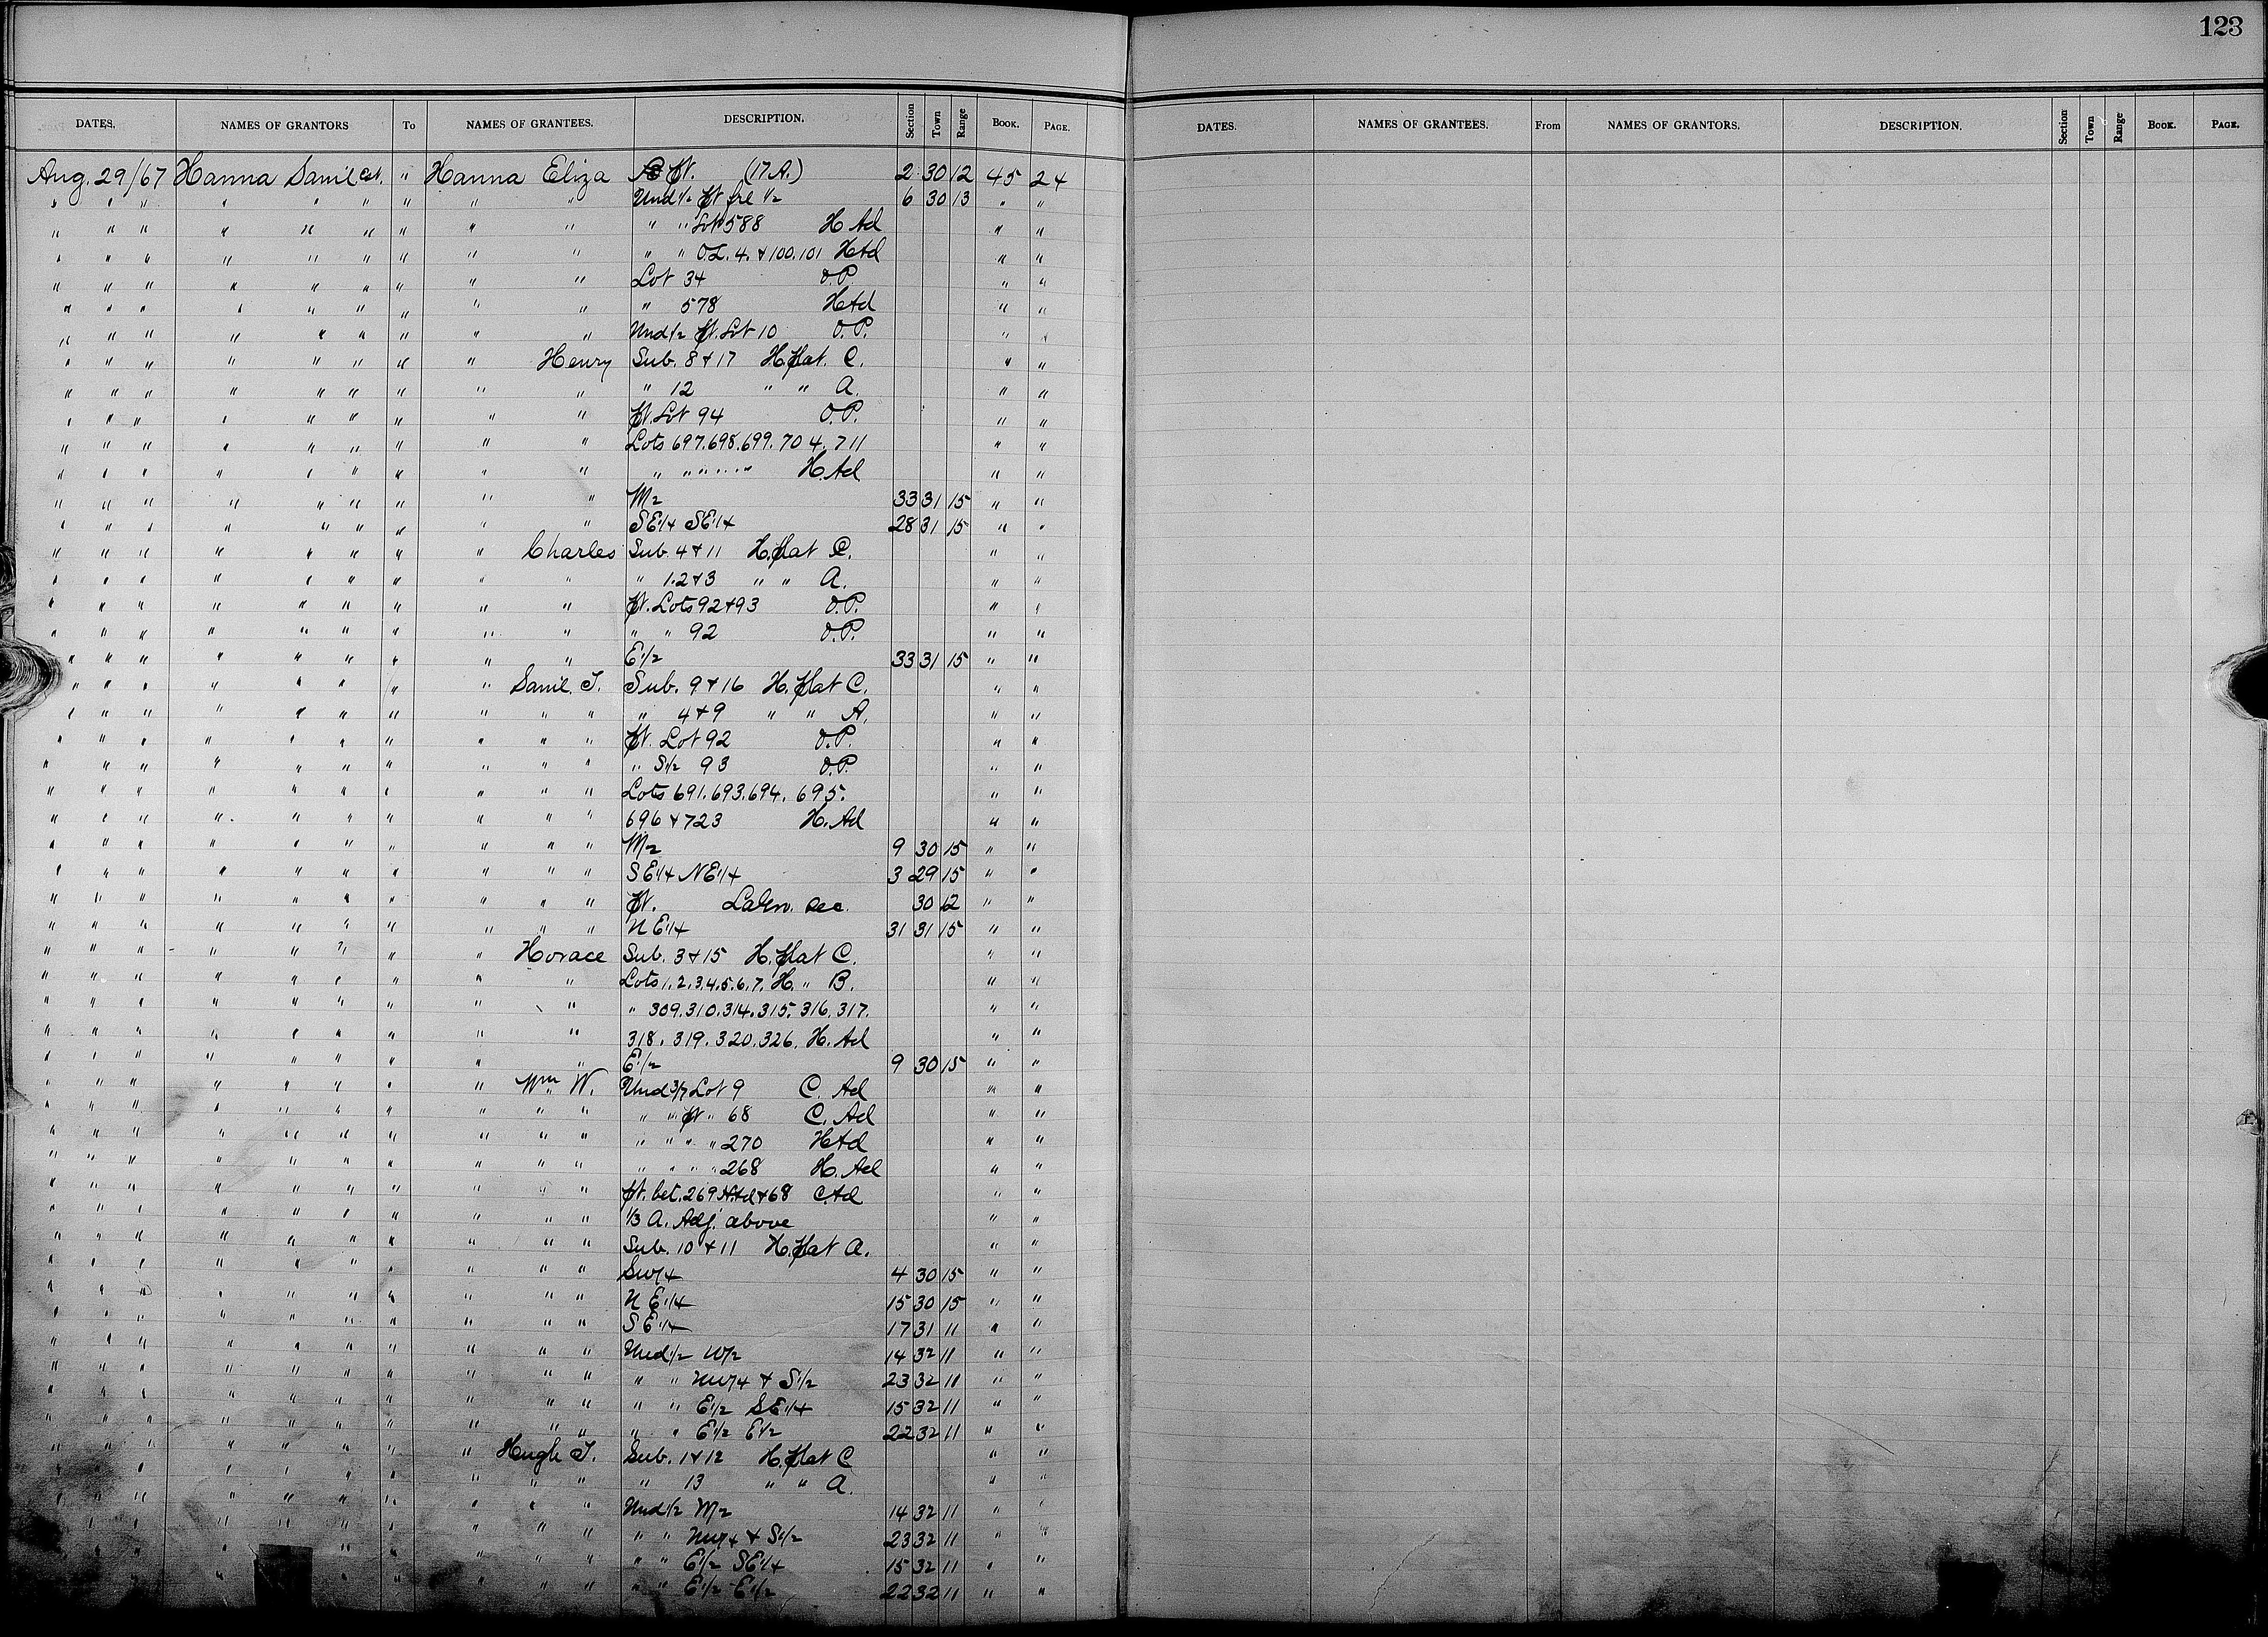 123
DATES. NAMES OF GRANTORS To NAMES OF GRANTEES. DESCRIPTION. Section Town Range BOOK. PAGE.
DATES. NAMES OF GRANTEES. From NAMES OF GRANTORS. DESCRIPTION. Section Town Range BOOK. PAGE.
Aug. 29/67 Hanna Saml Est. " Hanna Eliza Pt. (17 A.) 2 30 12 45 24
" " " " " " " " " Und 1/2 Pt fre 1/2 6 30 13 " "
" " " " " " " " " " " Lot 588 H Ad " "
" " " " " " " " " " " O.L. 4. & 100.101 H Ad " "
" " " " " " " " " Lot 34 O.P. " "
" " " " " " " " " " 578 H Ad " "
" " " " " " " " " Und 1/2 Pt. Lot 10 O.P. " "
" " " " " " " " Henry Sub. 8 & 17 H. plat. C. " "
" " " " " " " " " " 12 " " A. " "
" " " " " " " " " Pt. Lot 94 O.P. " "
" " " " " " " " " Lots 697.698.699.704.711 " "
" " " " " " " " " " " " " " " H. Ad " "
" " " " " " " " " W 1/2 33 31 15 " "
" " " " " " " " " SE 1/4 SE 1/4 28 31 15 " "
" " " " " " " " Charles Sub. 4 & 11 H. plat C. " "
" " " " " " " " " " 1.2 & 3 " " A. " "
" " " " " " " " " Pt. Lots 92 & 93 O.P. " "
" " " " " " " " " " " 92 O.P. " "
" " " " " " " " " E 1/2 33 31 15 " "
" " " " " " " " Saml. T. Sub. 9 & 16 H. plat C. " "
" " " " " " " " " " " 4 & 9 " " A. " "
" " " " " " " " " " Pt. Lot 92 O.P. " "
" " " " " " " " " " " S 1/2 93 O.P. " "
" " " " " " " " " " Lots 691.693.694.695. " "
" " " " " " " " " " 696 & 723 H. Ad " "
" " " " " " " " " " W 1/2 9 30 15 " "
" " " " " " " " " " SE 1/4 NE 1/4 3 29 15 " "
" " " " " " " " " " Pt. Sec. 30 12 " "
" " " " " " " " " " N E 1/4 31 31 15 " "
" " " " " " " " Horace Sub. 3 & 15 H. plat C. " "
" " " " " " " " " Lots 1.2.3.4.5.6.7. H. " B. " "
" " " " " " " " " " 309.310.314.315.316.317. " "
" " " " " " " " " 318.319.320.326. H. Ad " "
" " " " " " " " " E 1/2 9 30 15 " "
" " " " " " " " Wm W. Und 3/7 Lot 9 C. Ad " "
" " " " " " " " " " " " Pt " 68 C. Ad " "
" " " " " " " " " " " " " " 270 H Ad " "
" " " " " " " " " " " " " " 268 H. Ad " "
" " " " " " " " " " pt. bet. 269 H. Ad & 68 C. Ad " "
" " " " " " " " " " 1/3 A. Adj. above " "
" " " " " " " " " " Sub. 10 & 11 H. plat A. " "
" " " " " " " " " " SW 1/4 4 30 15 " "
" " " " " " " " " " N E 1/4 15 30 15 " "
" " " " " " " " " " S E 1/4 17 31 11 " "
" " " " " " " " " " Und 1/2 W 1/2 14 32 11 " "
" " " " " " " " " " " " NW 1/4 & S 1/2 23 32 11 " "
" " " " " " " " " " " " E 1/2 SE 1/4 15 32 11 " "
" " " " " " " " " " " " E 1/2 E 1/2 22 32 11 " "
" " " " " " " " Hugh T. Sub. 1 & 12 H. plat C " "
" " " " " " " " " " " 13 " " A. " "
" " " " " " " " " " Und 1/2 W 1/2 14 32 11 " "
" " " " " " " " " " " " NW 1/4 & S 1/2 23 32 11 " "
" " " " " " " " " " " " E 1/2 SE 1/4 15 32 11 " "
" " " " " " " " " " " " E 1/2 E 1/2 22 32 11 " "